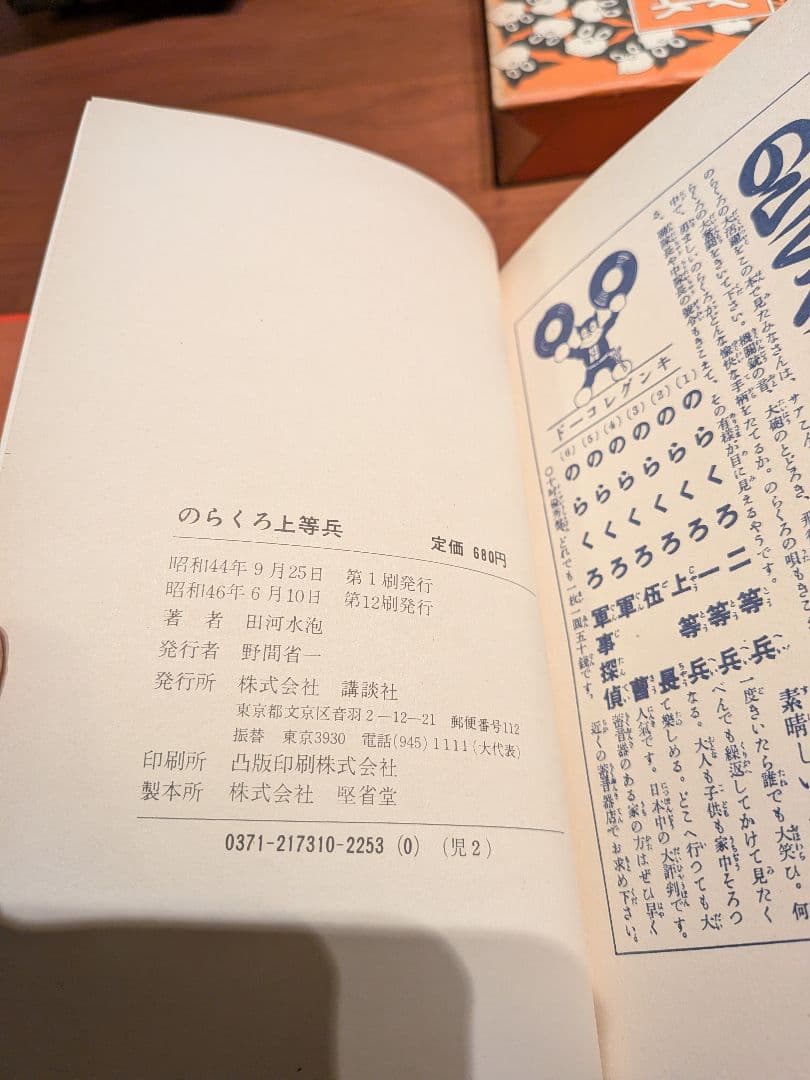 のらくろ上等兵
定価 680円
昭和44年9月25日 第1刷発行
昭和46年6月10日 第12刷発行
著 者 田河水泡
発行者 野間省一
発行所 株式会社 講談社
東京都文京区音羽2-12-21 郵便番号112
振替 東京3930 電話(945)1111(大代表)
印刷所 凸版印刷株式会社
製本所 株式会社 堅省堂
0371-217310-2253 (0) (児2)
のらくろ
のらくろの大活躍をこの本で見たみなさんは、サアこん
らくろの大奮闘をきいて下さい。機関銃の音、大砲のとどろき、飛
中で、勇ましいのらくろがどんな愉快な手柄をたてるか。のらくろの唄もきこ
キングレコード
(1)のらくろ二等兵
(2)のらくろ一等兵
(3)のらくろ上等兵
(4)のらくろ伍長
(5)のらくろ軍曹
(6)のらくろ軍事探偵
素晴しい
一度きいたら誰でも大笑ひ。何
べんでも繰返してかけて見たく
なる。大人も子供も家中そろつ
て楽しめる。どこへ行つても大
人気です。日本中の大評判です。
蓄音器のある家の方はぜひ早く
近くの蓄音器店でお求め下さい。